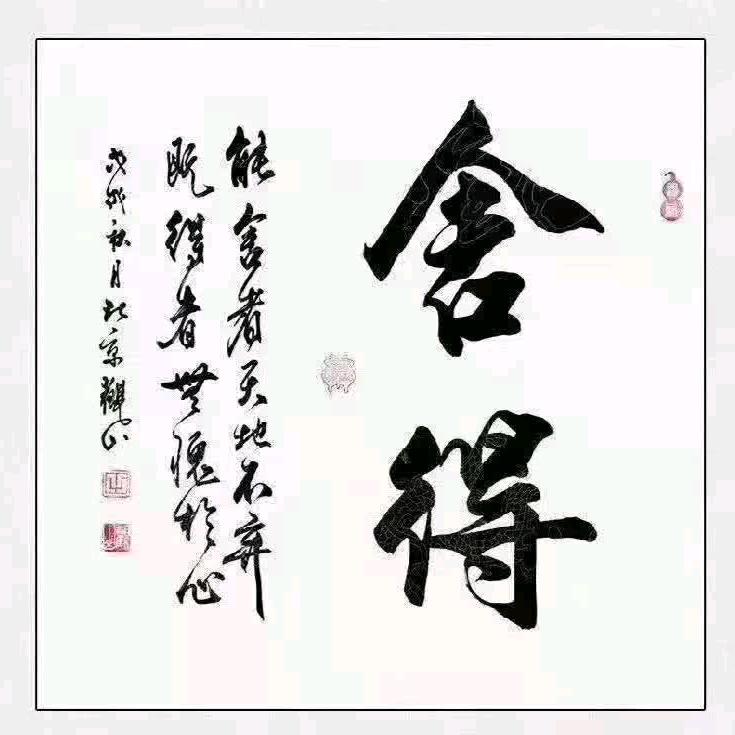 舍得
能舍者天地不弃
既得者無愧於心
戊戌秋月北京觀山